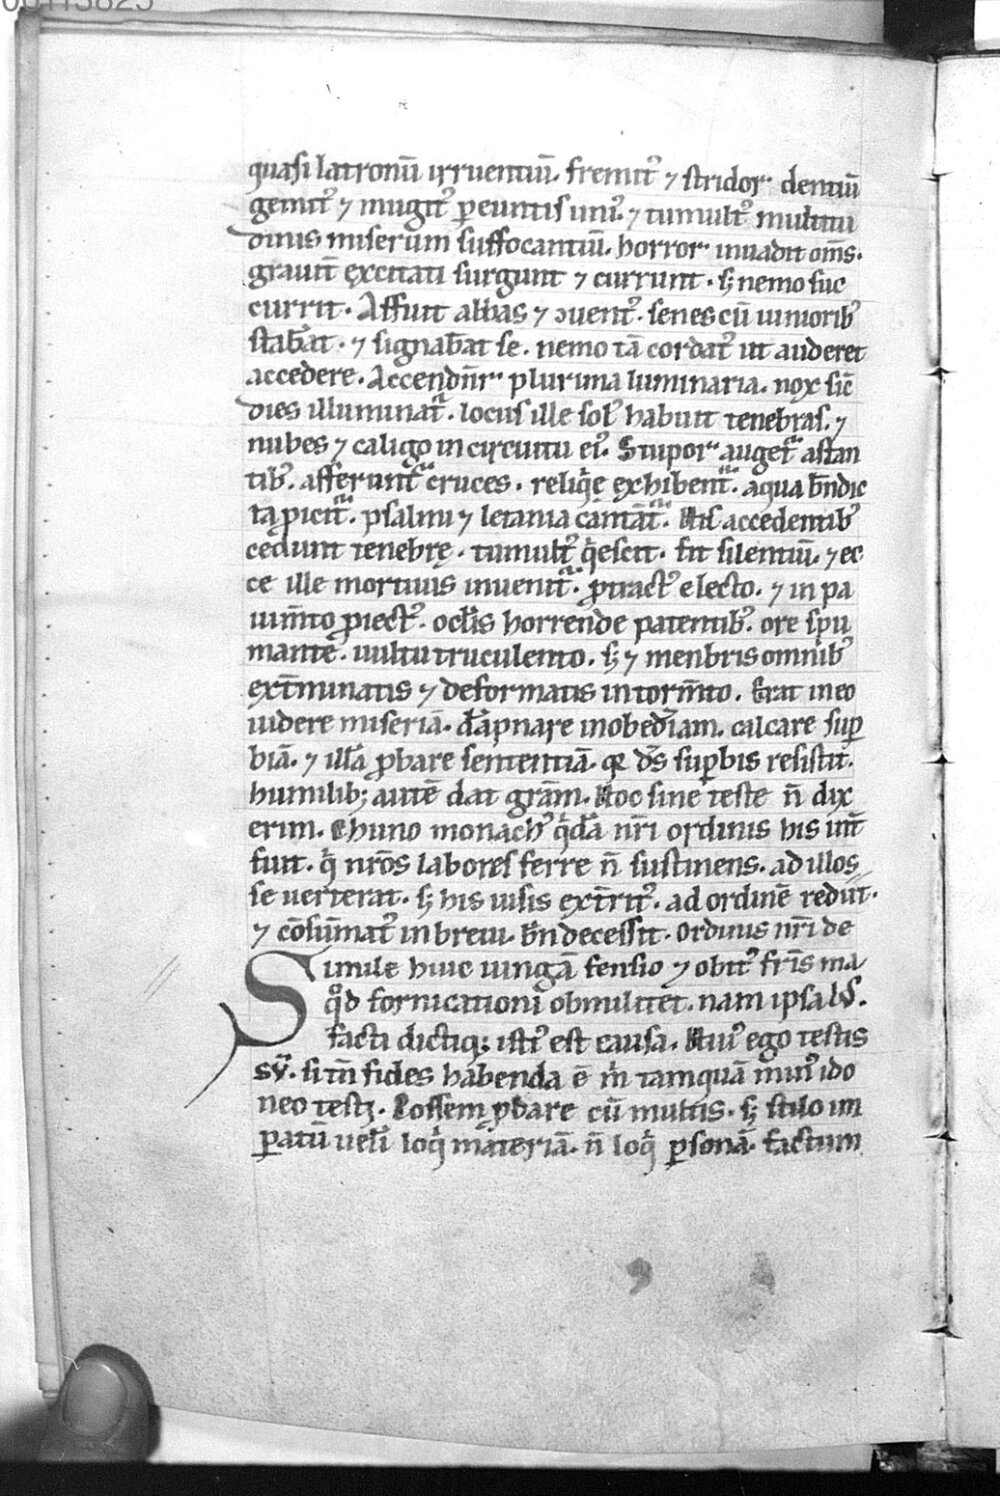 quasi latronū irruentiū. fremit᷒ ⁊ stridor dentiū
gemit᷒ ⁊ mugit᷒ ꝑeuntis uni᷒. ⁊ tumult᷒ multitu
dinis miserum suffocantiū. horror inuadit om̄s.
grauit̄ excitati surgunt ⁊ currunt. sꝫ nemo suc
currit. Affuit abbas ⁊ ↄuent᷒. senes cū iuniorib᷒
stab̄at. ⁊ signab̄at se. nemo tā cordat᷒ ut auderet
accedere. Accendūr plurima luminaria. nox sic̄
dies illuminat̃. locus ille sol᷒ habuit tenebras. ⁊
nubes ⁊ caligo in circuitu ei᷒. Stupor auget̃ astan
tib᷒. afferunt̃ cruces. reliq̄e exhibent̃. aqua b̄ndic
ta ꝓicit̃. psalmi ⁊ letania cantāt̃. His accedentib᷒
cedunt tenebrę. tumult᷒ q̇escit. fit silentiū. ⁊ ec
ce ille mortuus inuenit̃. ꝓtract᷒ e lecto. ⁊ in pa
uim̄to ꝓiect᷒. oclis̄ horrende patentib᷒. ore spu
mante. uultu truculento. sꝫ ⁊ menbris omnib᷒
ext̄minatis ⁊ deformatis in torm̄to. Erat in eo
uidere miseriā. dāpnare inobed̄iam. calcare suꝑ
biā. ⁊ illā ꝓbare sententiā. qr d̄s suꝑbis resistit.
humilibꝫ autē dat grām. Hoc sine teste n̄ dix
erim. Huno monach᷒ q̇dā nr̄i ordinis his int̄
fuit. q̇ nr̄os labores ferre n̄ sustinens. ad illos
se uerterat. sꝫ his uisis ext̄rit᷒. ad ordinē rediit.
⁊ cōsūmat᷒ in breui. bn̄ decessit. Ordinis nr̄i de
Simile huic iungā fensio ⁊ obit᷒ fr̄is ma
qͦd fornicationi obmulitet. nam ipsa lꝫ.
facti dictiqꝫ isti᷒ est causa. Hui᷒ ego testis
sū. si tn̄ fides habenda ē m̄ tamquā min᷒ ido
neo testi. Possem ꝓbare cū multis. sꝫ stilo im
ꝑatū uelī loq̇ māteriā. n̄ loq̇ ꝑsonā. factum